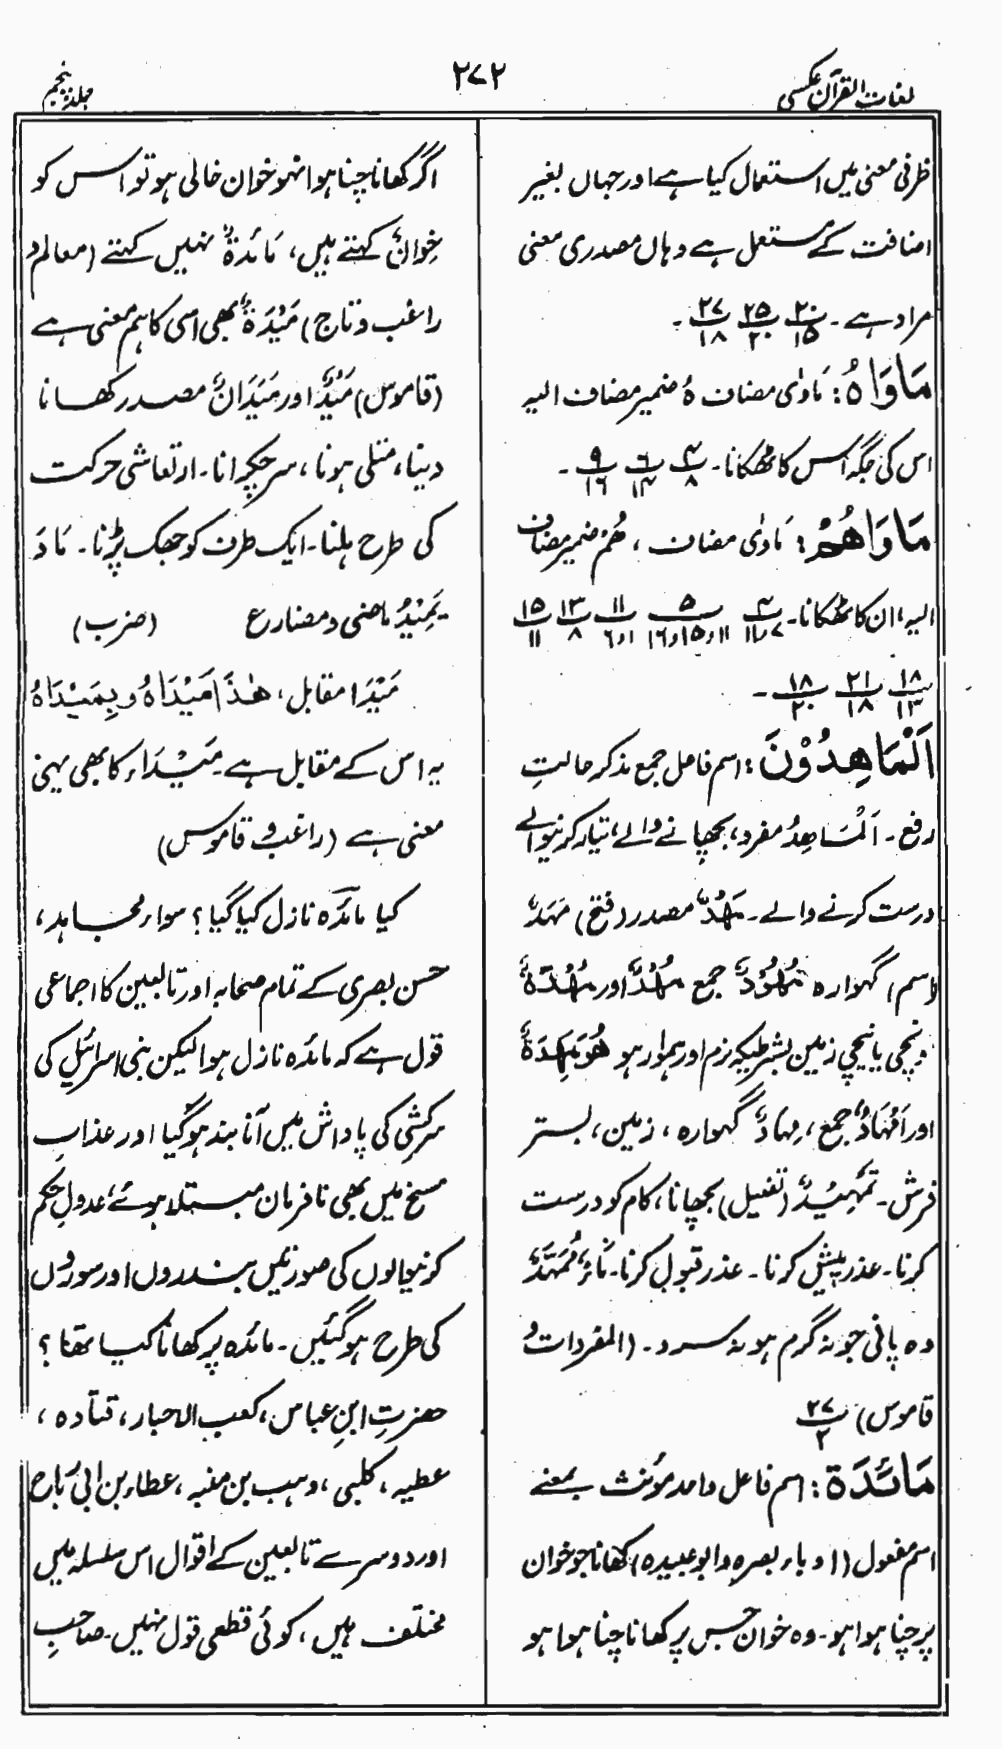 لغات القرآن عکسی
۲۷۲
جلد پنجم
ظرفی معنی میں استعمال کیا ہے اور جہاں بغیر
اضافت کے مستعمل ہے وہاں مصدری معنی
مراد ہے۔ ۲۰/۱۵ ۲۵/۲۰ ۲۷/۱۸ ۔
مَاوَاہُ: مَاوٰی مضاف ہُ ضمیر مضاف الیہ
اس کی جگہ اس کا ٹھکانا۔ ۴/۸ ۶/۱۴ ۹/۱۶ ۔
مَاوَاھُمْ: مَاوٰی مضاف، ھُمْ ضمیر مضاف
الیہ، ان کا ٹھکانا۔ ۴/۷و۱۱ ۵/۱۱و۱۵و۱۶ ۱۱/۱و۶ ۱۳/۸ ۱۵/۱۱
۱۸/۱۳ ۲۱/۱۸ ۱۸/۲۰ ۔
اَلْمَاھِدُوْنَ: اسم فاعل جمع مذکر حالتِ
رفع۔ اَلْمَاھِدُ مفرد، بچھانے والے، تیار کرنیوالے
درست کرنے والے۔ مَہْدٌ مصدر (فتح) مَہْدٌ
(اسم) گہوارہ مُہُوْدٌ جمع مُہْدٌ اور مُہْدَۃٌ
اونچی یا نیچی زمین بشرطیکہ نرم اور ہموار ہو مُہْدَۃٌ
اور اَمْہَادٌ جمع، مِہَادٌ گہوارہ، زمین، بستر
فرش۔ تَمْہِیْدٌ (تفعیل) بچھانا، کام کو درست
کرنا۔ عذر پیش کرنا۔ عذر قبول کرنا۔ مَاءٌ مُمَہَّدٌ
وہ پانی جو نہ گرم ہو نہ سرد۔ (المفردات و
قاموس) ۲۷/۲
مَائِدَۃ: اسم فاعل واحد مؤنث بمعنے
اسم مفعول (ادباء بصرہ و ابو عبیدہ) کھانا جو خوان
پر چنا ہوا ہو۔ وہ خوان جس پر کھانا چنا ہوا ہو
اگر کھانا چنا ہوا نہو خوان خالی ہو تو اس کو
خِوَانٌ کہتے ہیں، مَائدۃٌ نہیں کہتے (معالم و
راغب و تاج) مَیْدَۃٌ بھی اسی کا ہم معنی ہے
(قاموس) مَیْدٌ اور مَیَدَانٌ مصدر کھانا
دینا، متلی ہونا، سر چکرانا۔ ارتعاشی حرکت
کی طرح ہلنا۔ ایک طرف کو جھک پڑنا۔ مَادَ
یَمِیْدُ ماضی و مضارع (ضرب)
مَیْدَا مقابل، ھٰذَا مَیْدَاہُ و بِمَیْدَاہُ
یہ اس کے مقابل ہے۔ مَیْدَاء کا بھی یہی
معنی ہے (راغب و قاموس)
کیا مائدہ نازل کیا گیا؟ سواء مجاہد،
حسن بصری کے تمام صحابہ اور تابعین کا اجماعی
قول ہے کہ مائدہ نازل ہوا لیکن بنی اسرائیل کی
سرکشی کی پاداش میں آنا بند ہوگیا اور عذاب
مسخ میں بھی نافرمان مبتلا ہوئے، عدول حکم
کرنیوالوں کی صورتیں بندروں اور سوروں
کی طرح ہوگئیں۔ مائدہ پر کھانا کیا تھا؟
حضرتِ ابنِ عباس، کعب الاحبار، قتادہ،
عطیہ، کلبی، وہب بن منبہ، عطاء بن ابی رَبَاح
اور دوسرے تابعین کے اقوال اس سلسلہ میں
مختلف ہیں، کوئی قطعی قول نہیں۔ صاحبِ